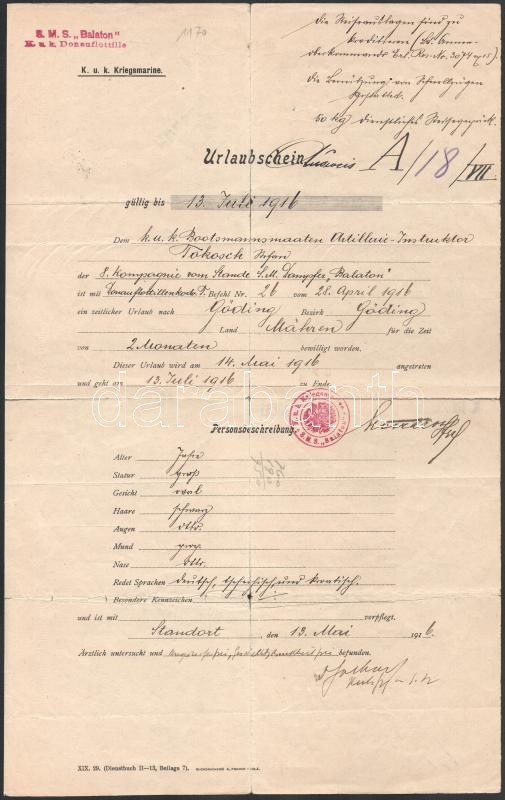 S. M. S. „Balaton"
K. u. k. Donauflottille
1170
K. u. k. Kriegsmarine.
Die Reiseauslagen sind zu
kreditieren
Die Benützung von Schnellzügen
gestattet.
50 kg dienstliches Reisegepäck.
Urlaubschein A/18/VII
gültig bis 13. Juli 1916
Dem k. u. k. Bootsmannsmaaten Artillerie-Instruktor
Tokosch Stefan
der 8. Kompagnie vom Stande S. M. Dampfer „Balaton"
ist mit Befehl Nr. 26 vom 28. April 1916
ein zeitlicher Urlaub nach Göding Bezirk Göding
Land Mähren für die Zeit
von 2 Monaten bewilligt worden.
Dieser Urlaub wird am 14. Mai 1916 angetreten
und geht am 13. Juli 1916 zu Ende.
darabanth
Personsbeschreibung
Alter Jahre
Statur groß
Gesicht oval
Haare schwarz
Augen dtto.
Mund prop.
Nase dtto.
Redet Sprachen deutsch, tschechisch und kroatisch.
Besondere Kennzeichen
und ist mit verpflegt.
Standort, den 13. Mai 1916.
Ärztlich untersucht und befunden.
XIX. 29. (Dienstbuch II—13, Beilage 7).